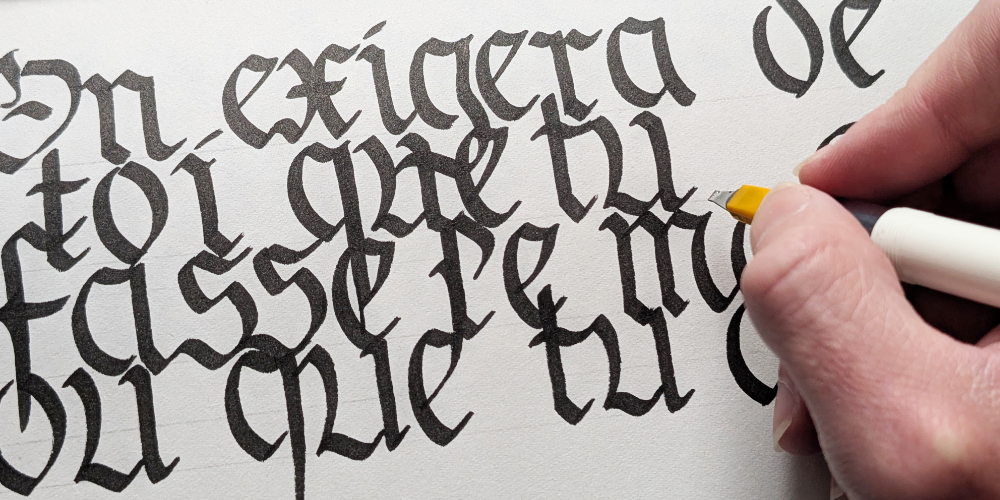 On exigera de
toi que tu
fasses re
ou que tu